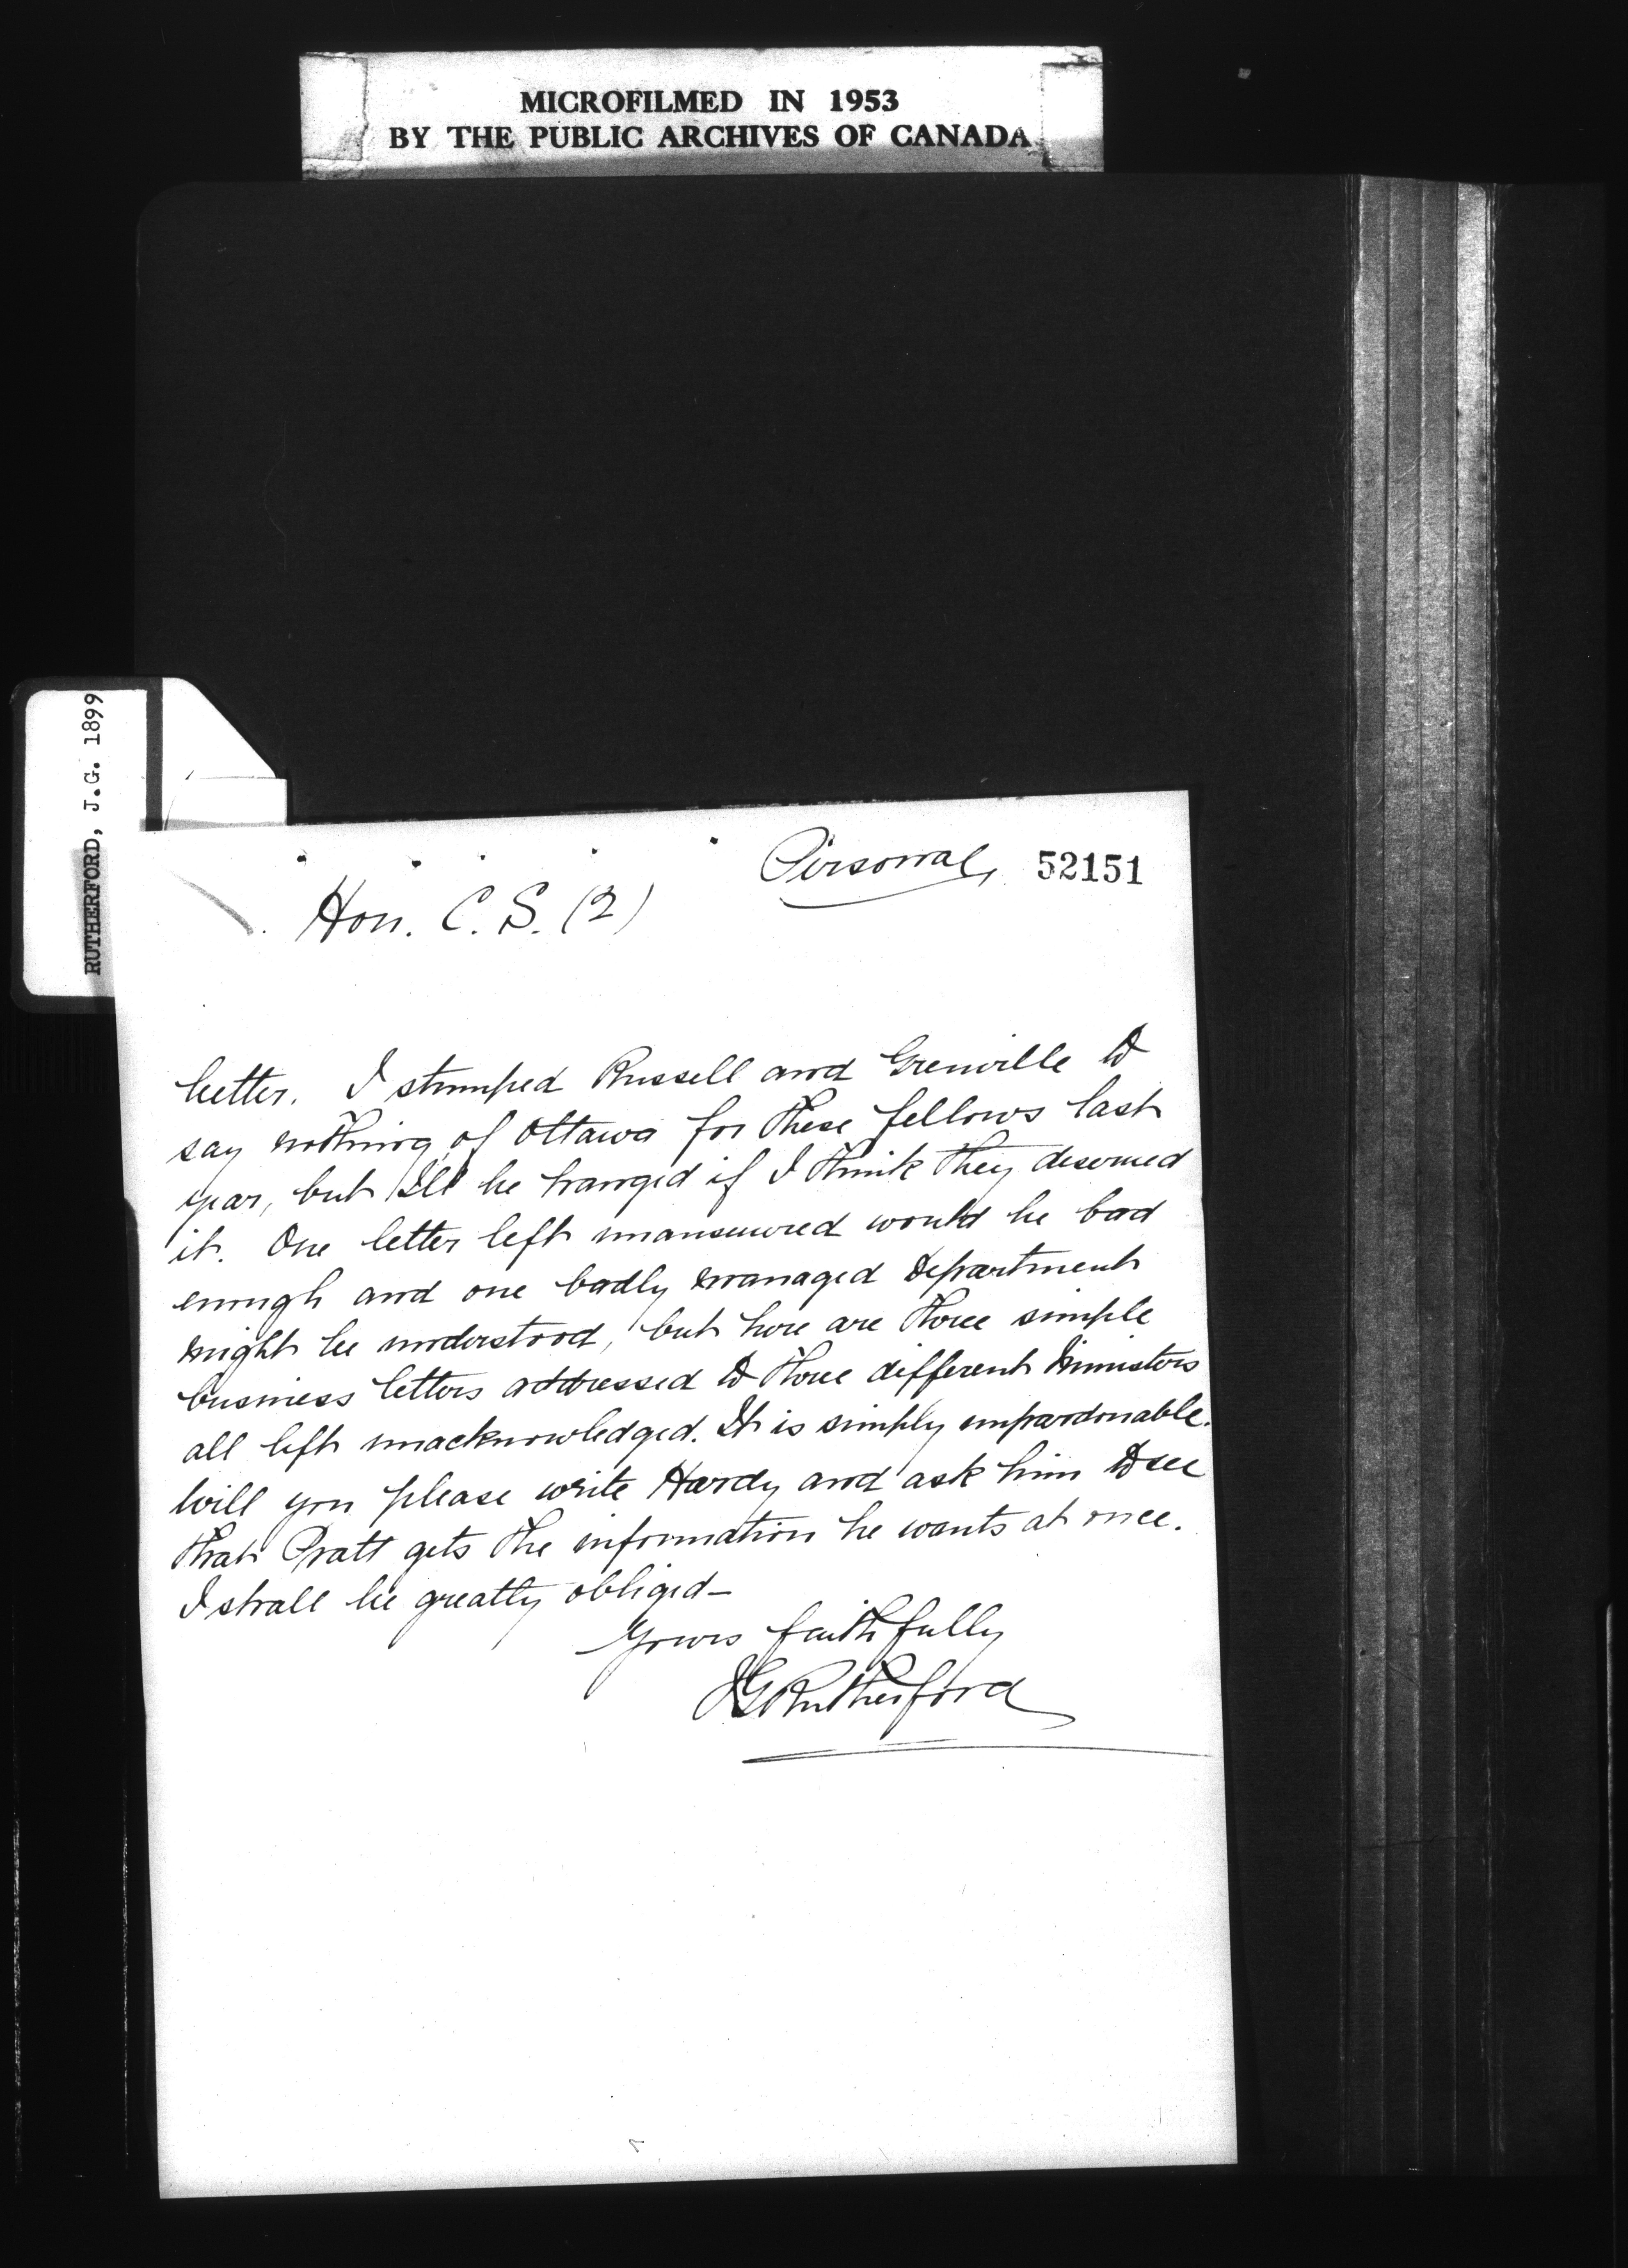 MICROFILMED IN 1953
BY THE PUBLIC ARCHIVES OF CANADA
RUTHERFORD, J.G. 1899
Personal, 52151
Hon. C. S. (2)
letter. I stumped Russell and Grenville to
say nothing of Ottawa for these fellows last
year, but I'll be hanged if I think they deserved
it. One letter left unanswered would be bad
enough and one badly managed Department
might be understood, but here are three simple
business letters addressed to three different Ministers
all left unacknowledged. It is simply unpardonable.
Will you please write Hardy and ask him to see
that Pratt gets the information he wants at once.
I shall be greatly obliged—
Yours faithfully
JGRutherford